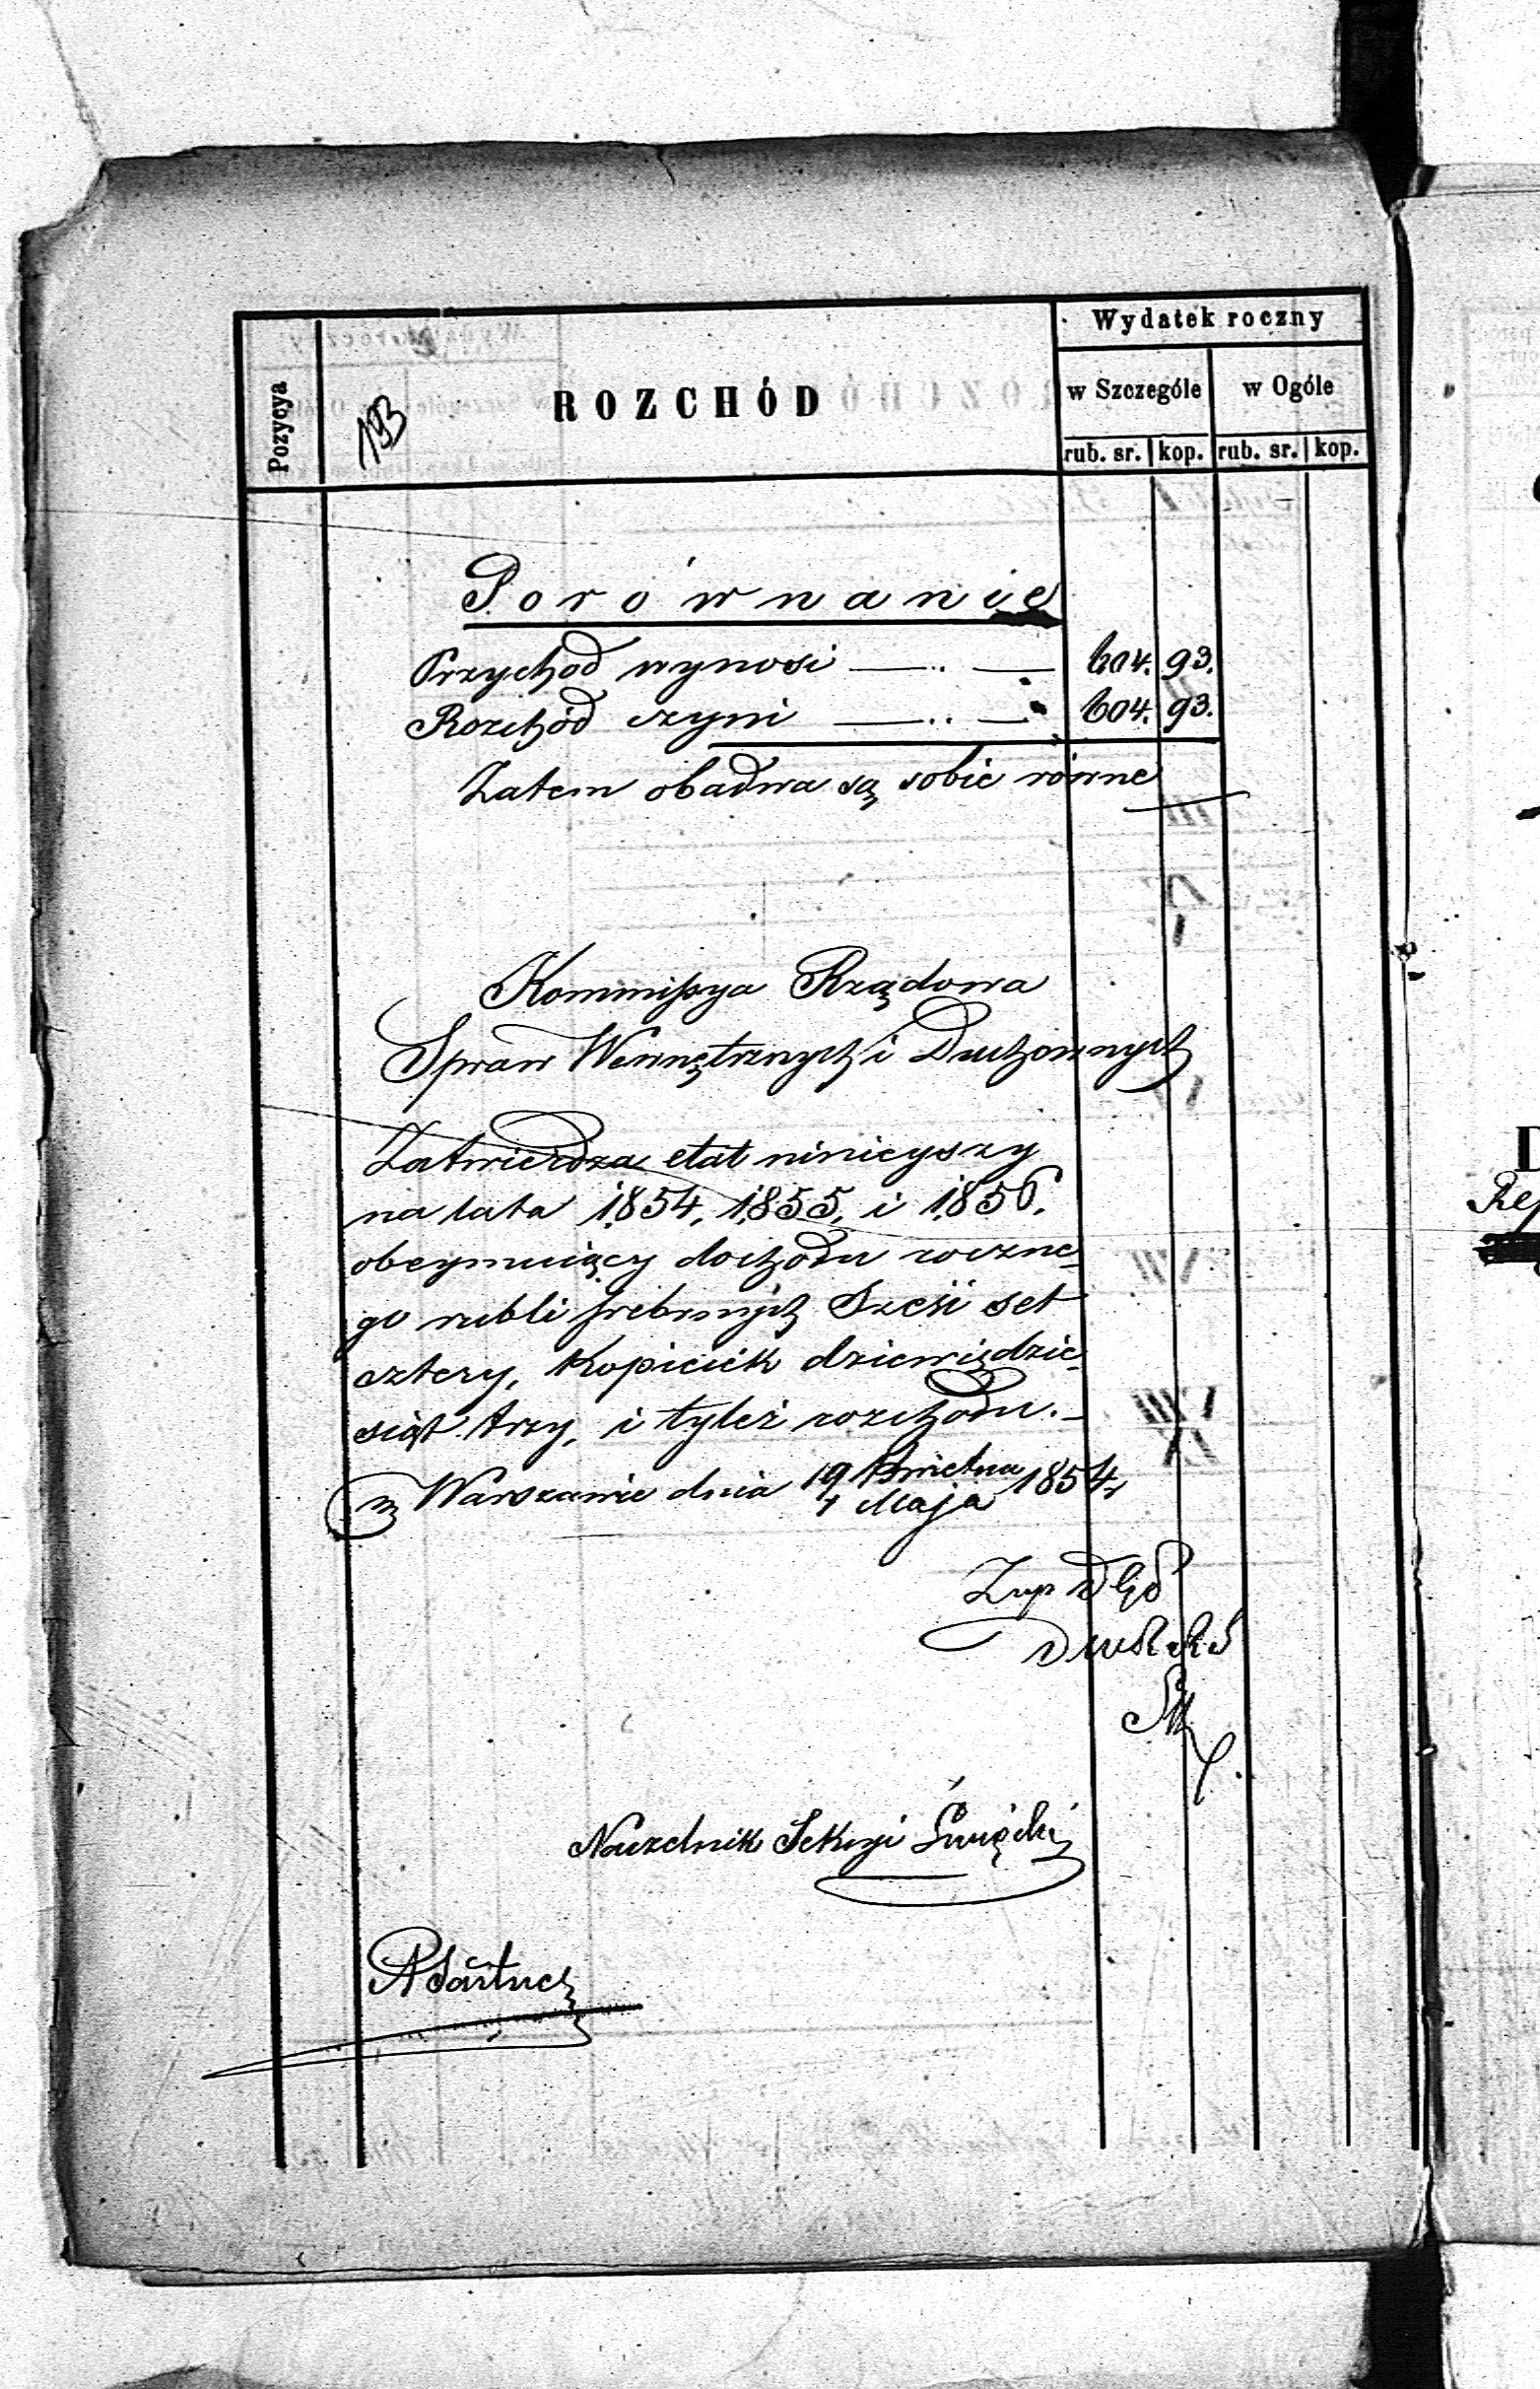 Wydatek roczny
Pozycya
193
ROZCHÓD
w Szczególe
w Ogóle
rub. sr. kop. rub. sr. kop.
Porównanie
Przychod wynosi 604. 93.
Rozchód czyni 604. 93.
Zatem obadwa są sobie równe
Kommissya Rządowa
Spraw Wewnętrznych i Duchownych
Zatwierdza etat ninieyszy
na lata 1854, 1855, i 1856.
obeymuiący dochodu roczne
go rubli srebrnych Sześć set
cztery, Kopieiek dziewiędzie
siąt trzy, i tyleż rozchodu.
w Warszawie dnia 19 Kwietnia 1854
Maja
Naczelnik Sekcyi Święcki